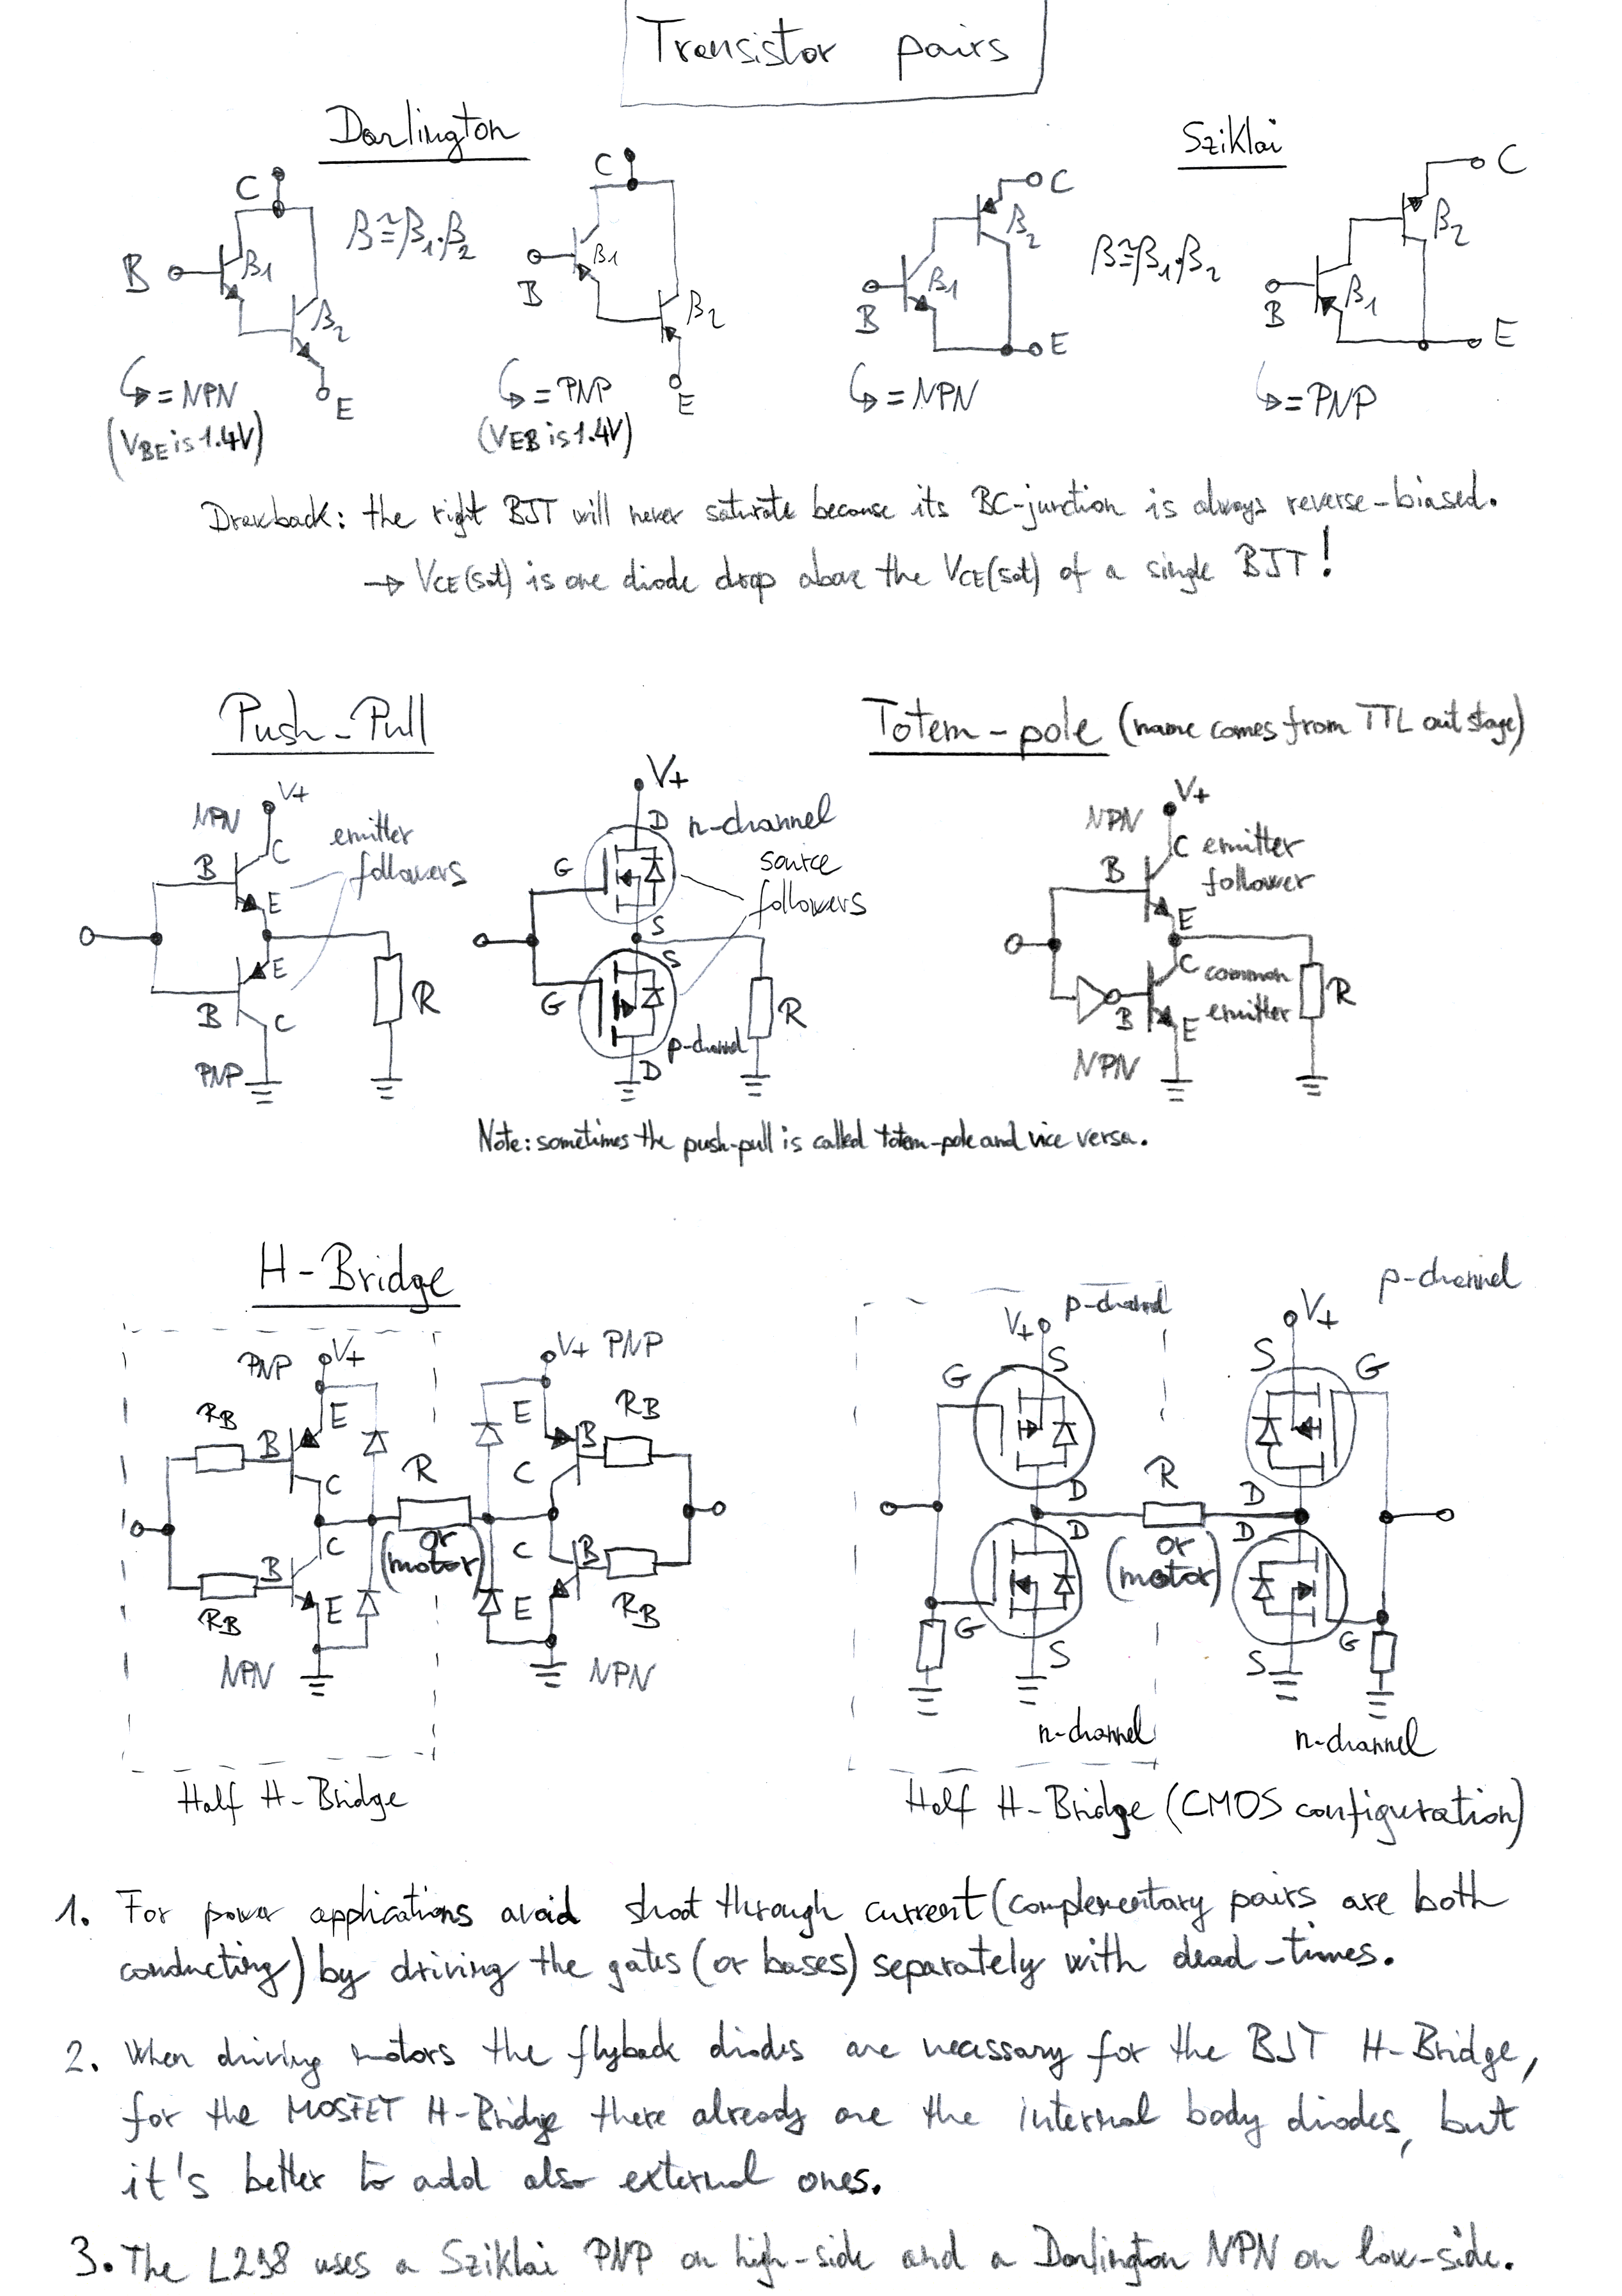 Transistor pairs
Darlington
Sziklai
C
B
β1
β2
E
β≅β1.β2
C
B
β1
β2
E
C
B
β1
β2
E
β≅β1.β2
C
B
β1
β2
E
= NPN
(VBE is 1.4V)
= PNP
(VEB is 1.4V)
= NPN
= PNP
Drawback: the right BJT will never saturate because its BC-junction is always reverse-biased.
→ VCE(sat) is one diode drop above the VCE(sat) of a single BJT!
Push-Pull
Totem-pole (name comes from TTL out stage)
V+
NPN
C
B
E
emitter
followers
E
B
C
R
PNP
V+
D
n-channel
G
source
followers
S
S
G
R
p-channel
D
V+
NPN
C
emitter
follower
B
E
C
common
emitter
B
E
R
NPN
Note: sometimes the push-pull is called totem-pole and vice versa.
H-Bridge
PNP
V+
V+
PNP
RB
B
E
C
R
E
C
B
RB
(or motor)
C
B
E
RB
C
B
E
RB
NPN
NPN
Half H-Bridge
p-channel
p-channel
V+
V+
G
S
S
G
D
R
D
D
(or motor)
D
G
S
S
G
n-channel
n-channel
Half H-Bridge (CMOS configuration)
1. For power applications avoid shoot through current (complementary pairs are both
conducting) by driving the gates (or bases) separately with dead-times.
2. When driving motors the flyback diodes are necessary for the BJT H-Bridge,
for the MOSFET H-Bridge there already are the internal body diodes, but
it's better to add also external ones.
3. The L298 uses a Sziklai PNP on high-side and a Darlington NPN on low-side.